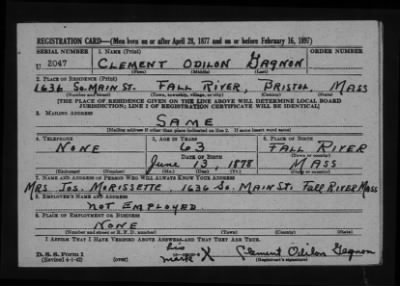 REGISTRATION CARD—(Men born on or after April 28, 1877 and on or before February 16, 1897)
SERIAL NUMBER 1. NAME (Print) ORDER NUMBER
U 2047 CLEMENT ODILON GAGNON
(First) (Middle) (Last)
2. PLACE OF RESIDENCE (Print)
1636 So. MAIN ST. FALL RIVER, BRISTOL MASS
(Number and street) (Town, township, village, or city) (County) (State)
[THE PLACE OF RESIDENCE GIVEN ON THE LINE ABOVE WILL DETERMINE LOCAL BOARD
JURISDICTION; LINE 2 OF REGISTRATION CERTIFICATE WILL BE IDENTICAL]
3. MAILING ADDRESS
SAME
[Mailing address if other than place indicated on line 2. If same insert word same]
4. TELEPHONE 5. AGE IN YEARS 6. PLACE OF BIRTH
NONE 63 FALL RIVER
DATE OF BIRTH (Town or county)
June 13, 1878 MASS
(Exchange) (Number) (Mo.) (Day) (Yr.) (State or country)
7. NAME AND ADDRESS OF PERSON WHO WILL ALWAYS KNOW YOUR ADDRESS
MRS JOS. MORISSETTE. 1636 So. MAIN ST. Fall River Mass
8. EMPLOYER'S NAME AND ADDRESS
NOT EMPLOYED.
9. PLACE OF EMPLOYMENT OR BUSINESS
NONE
(Number and street or R. F. D. number) (Town) (County) (State)
I AFFIRM THAT I HAVE VERIFIED ABOVE ANSWERS AND THAT THEY ARE TRUE.
D. S. S. Form 1 his
(Revised 4-1-42) (over) mark X Clement Odilon Gagnon
(Registrant's signature)